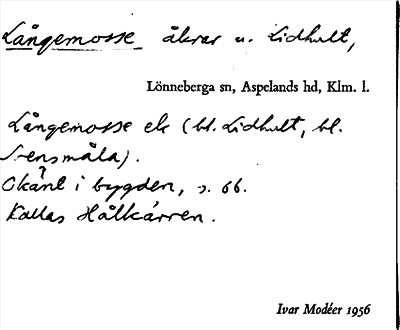 Långemosse åkrar u. Lidhult,
Lönneberga sn, Aspelands hd, Klm. l.
Långemosse ek (bl. Lidhult, bl.
Svensmåla).
?
Okänt i bygden, s. 66.
Kallas Hålkärren.
Ivar Modéer 1956